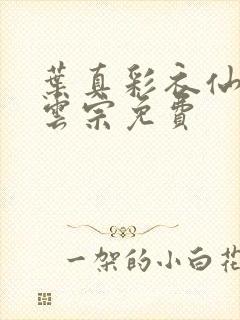 葉真彩衣仙
雲宗免費
一架的小白花